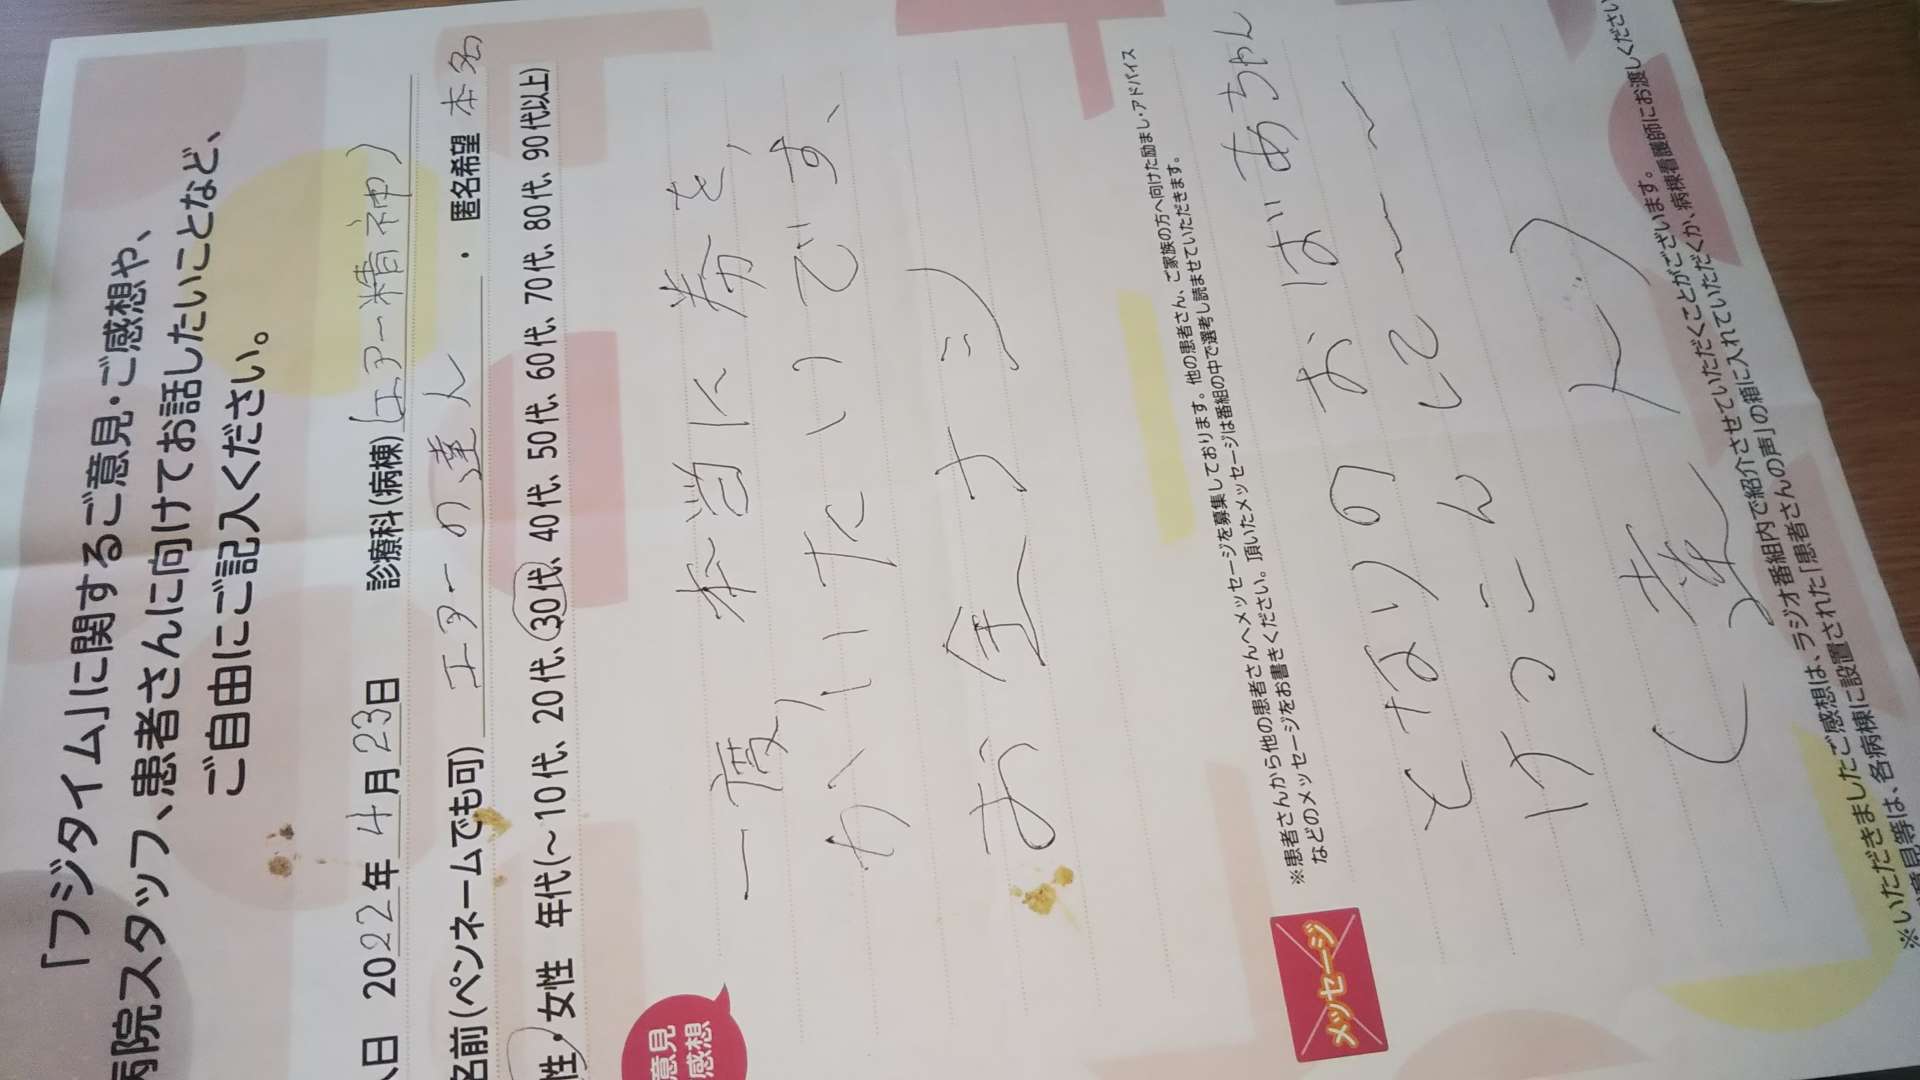 「フジタイム」に関するご意見・ご感想や、
病院スタッフ、患者さんに向けてお話したいことなど、
ご自由にご記入ください。
入日 2022年4月23日 診療科(病棟)(エアー精神)
名前(ペンネームでも可) エアーの達人 ・ 匿名希望 本名
性・女性 年代(～10代、20代、30代、40代、50代、60代、70代、80代、90代以上)
意見
感想
一度、本当に券を、
かいたいです、
お全ナシ
※患者さんから他の患者さんへメッセージを募集しております。他の患者さん、ご家族の方へ向けた励まし・アドバイス
などのメッセージをお書きください。頂いたメッセージは番組の中で選考し読ませていただきます。
メッセージ
となりのおばあちゃん
けっこんして〜〜
(笑)
※いただきましたご感想は、ラジオ番組内で紹介させていただくことがございます。
意見等は、各病棟に設置された「患者さんの声」の箱に入れていただくか、病棟看護師にお渡しください